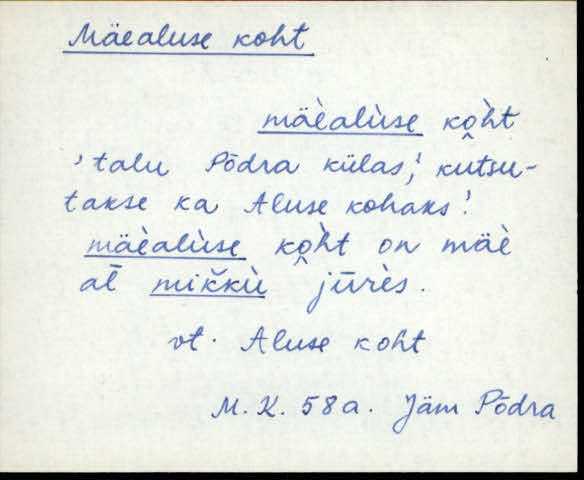 Mäealuse koht
mäèalùse ko̭ht
'talu Põdra külas,' kutsu-
takse ka Aluse kohaks!
mäèalùse ko̭ht on mäè
al̄ mikkù jūrès.
vt. Aluse koht
M. K. 58a. Jäm Põdra